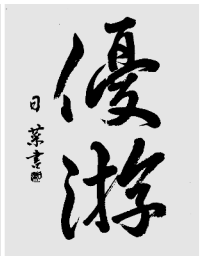 優游
日葉書